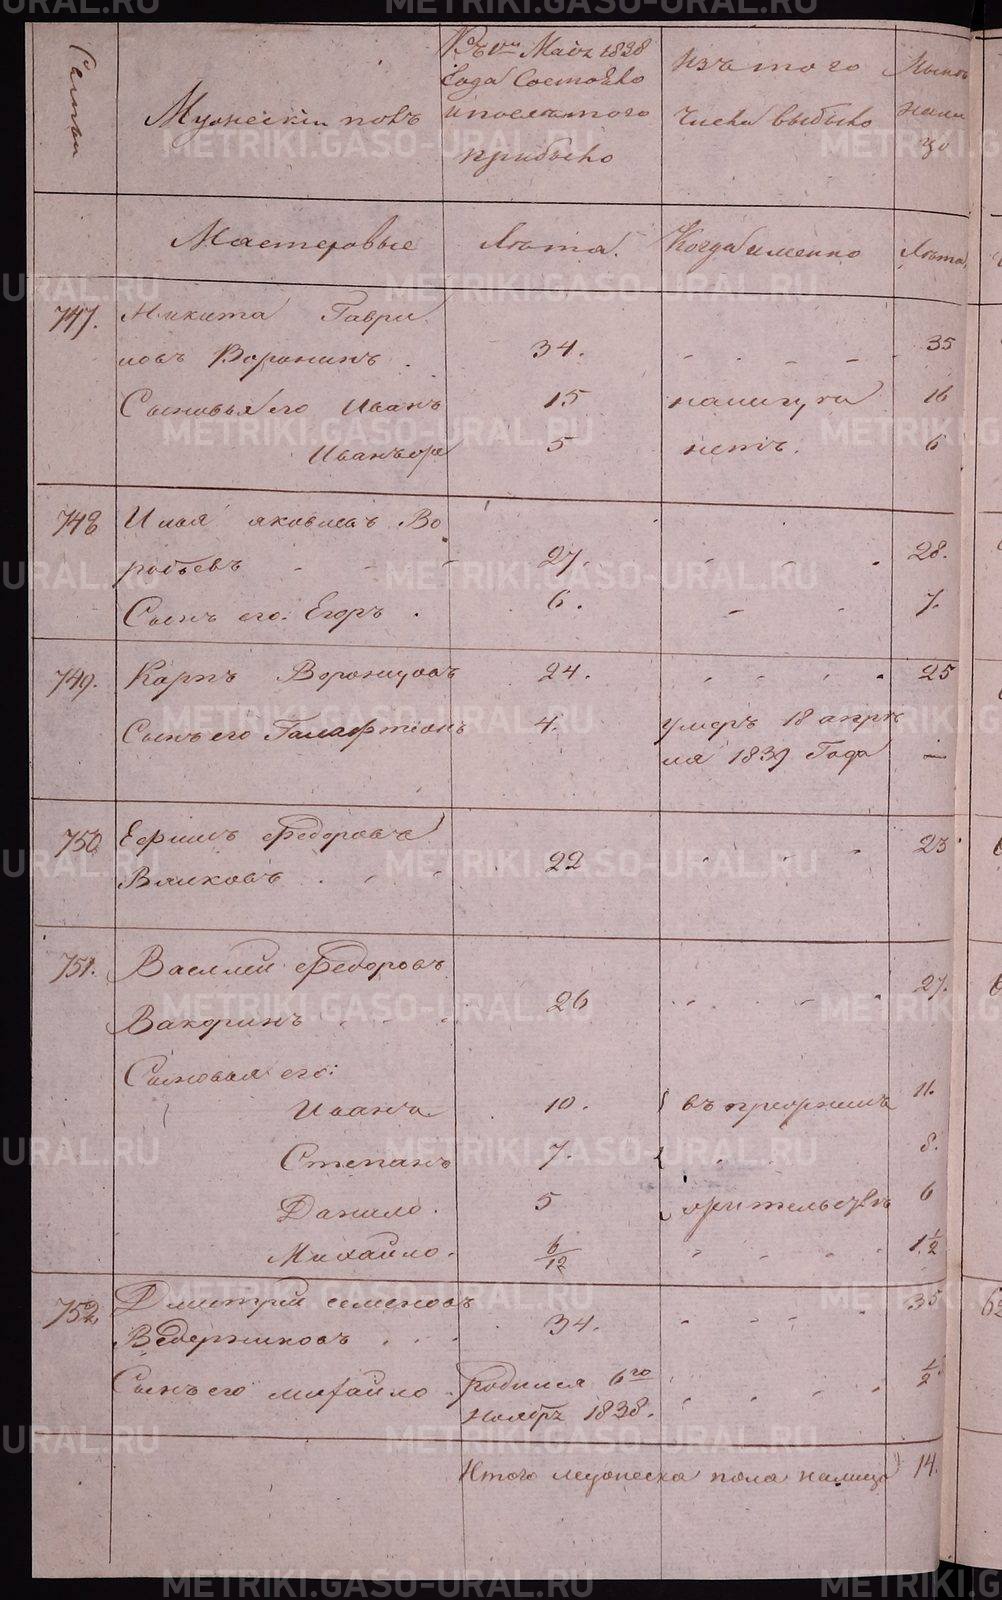 Семьи
Мужескiй полъ
Въ 1е Маiя 1838
Года Состояло
и после того
прибыло
Изъ того
Числа выбыло
Ныне
нали
цо
Мастеровые
Лѣта.
Когда именно
Лѣта.
747. Никита Гаври
ловъ Воронинъ . 34. 35
Сыновья его Иванъ 15 16
Иванъ 5 нетъ. 6
748 Илья яковлевъ Во
робьевъ 27. 28.
Сынъ его: Егоръ . 6. 7.
749. Карпъ Воронцовъ 24. 25
Сынъ его Галафтiонъ 4. умеръ 18 апре
ля 1839 Года —
750 Ефимъ Федоровъ
Вялковъ 22 23
751. Василей Федоровъ
Вахринъ 26 27.
Сыновья его:
Иванъ 10. 11.
Степанъ 7. 8.
Данило. 5 6
Михайло. 6/12 1 1/2
752 Дмитрей семеновъ
Ведерниковъ 34. 35
Сынъ его михайло родился 6го 1/2
ноябр 1838.
Итого мужеска пола налицо 14.
METRIKI.GASO-URAL.RU